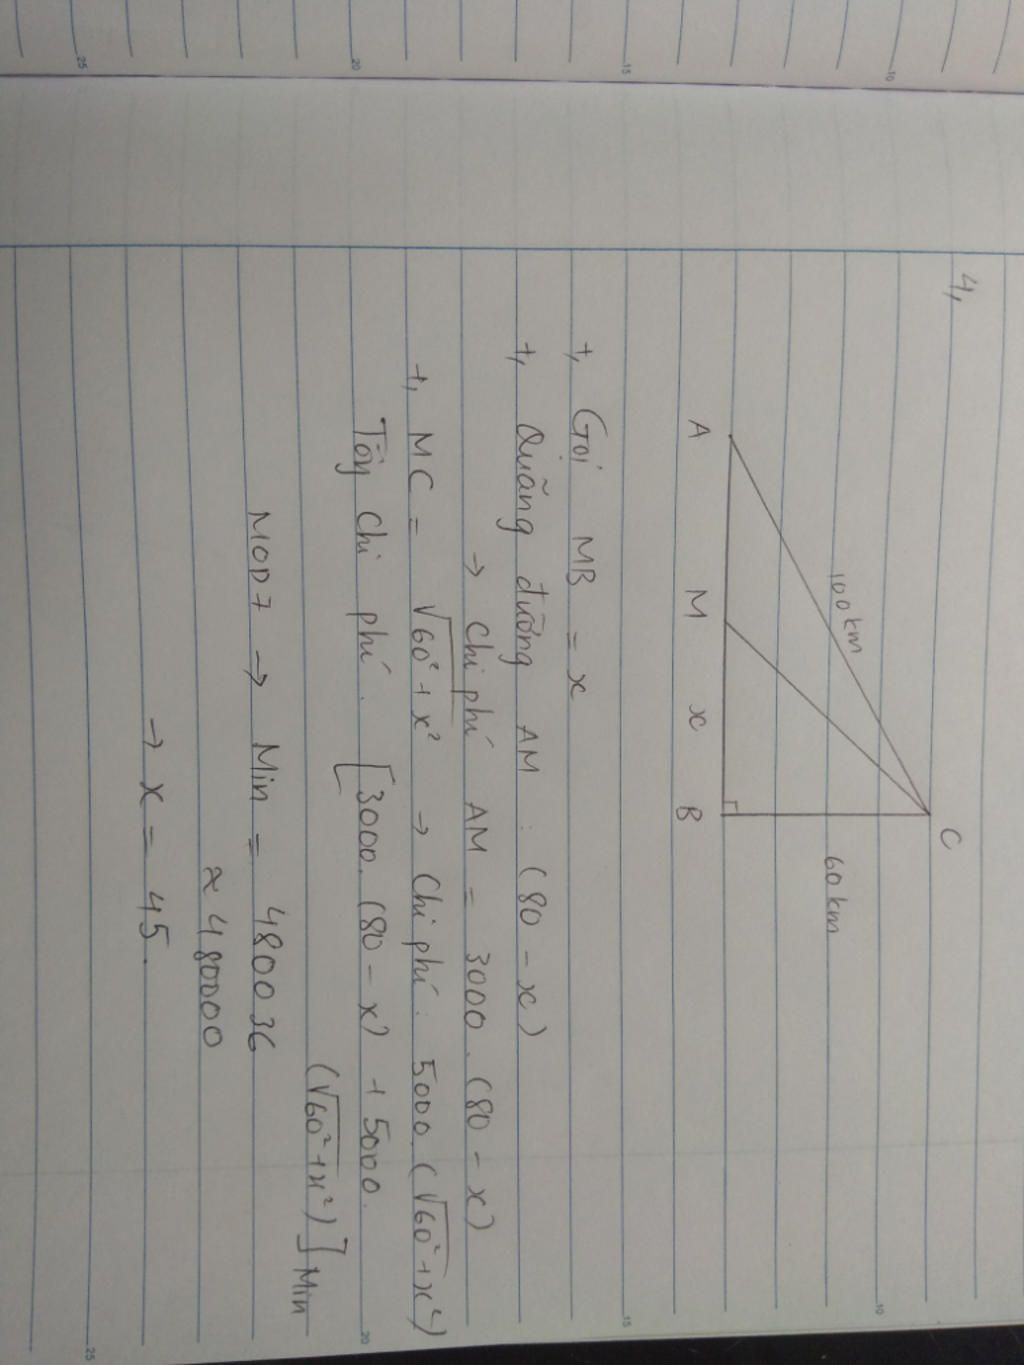 4,
C
100km
60km
A M x B
+, Gọi MB = x
+, Quãng đường AM : (80 - x)
→ Chi phí AM = 3000. (80 - x)
+, MC = √60² + x² → Chi phí: 5000. (√60² + x²)
Tổng Chi phí: [3000. (80 - x) + 5000.
(√60² + x²)] Min
MOD 7 → Min = 480036
≈ 480000
→ x = 45.
10
15
20
25
10
15
20
25